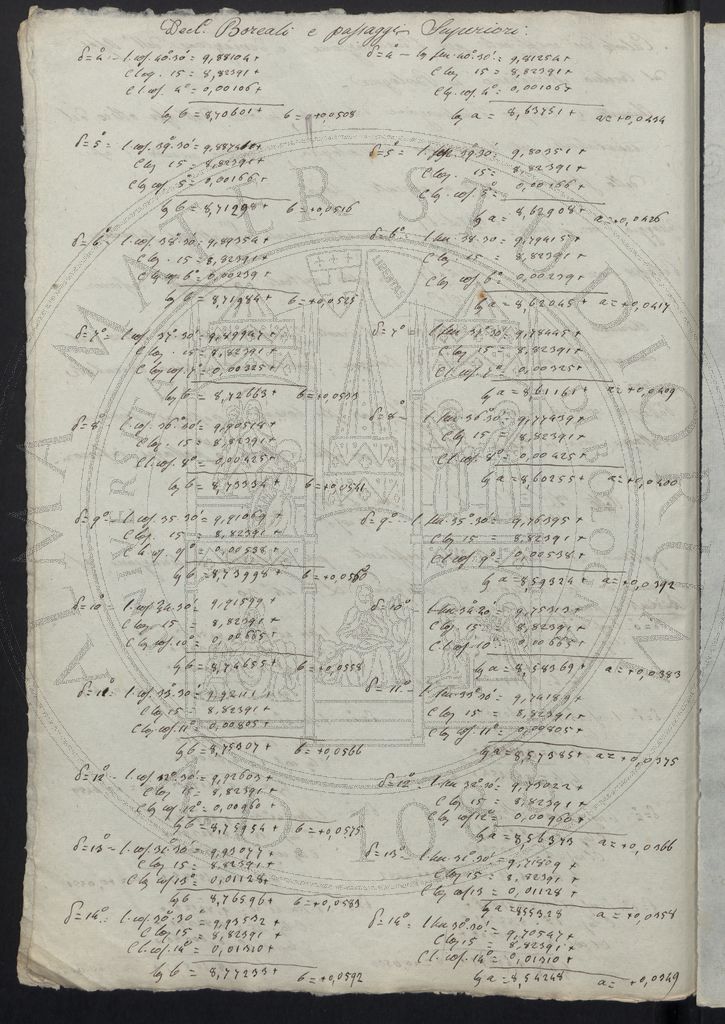 Decl. Boreali e passaggi Superiori.
δ=4° – l cos. 40°.30' = 9,88104+
C log. 15 = 8,82391+
C l cos. 4° = 0,00106+
lg b = 8,70601+ b = +0,0508
δ=4° – lg sen. 40°.30' = 9,81254+
C lg. 15 = 8,82391+
C lg. cos. 4° = 0,00106+
lg a = 8,63751+ a=+0,0434
δ=5° – l. cos. 39°.30' = 9,88741+
C log. 15 = 8,82391+
C lg cos. 5° = 0,00166+
lg b = 8,71298+ b = +0,0516
δ=5° – l. sen. 39°.30' = 9,80351+
C log. 15 = 8,82391+
C lg. cos. 5° = 0,00166+
lg a = 8,62908+ a=+0,0426
δ=6° – l. cos. 38°.30' = 9,89354+
C lg. 15 = 8,82391+
C lg cos 6° = 0,00239+
lg b = 8,71984+ b = +0,0525
δ=6° – l sen. 38.30' = 9,79415+
C lg. 15 = 8,82391+
C lg cos. 6° = 0,00239+
lg a = 8,62045+ a=+0,0417
δ=7° – l. cos. 37°.30' = 9,89947+
C log. 15 = 8,82391+
C log cos. 7° = 0,00325+
lg b = 8,72663+ b = +0,0533
δ=7° – l sen. 37°.30' = 9,78445+
C log 15 = 8,82391+
C lg cos. 7° = 0,00325+
lg a = 8,61161+ a=+0,0409
δ=8° – l. cos. 36°.30' = 9,90518+
C log. 15 = 8,82391+
C l. cos. 8° = 0,00425+
lg b = 8,73334+ b = +0,0541
δ=8° – l sen. 36°.30' = 9,77439+
C lg. 15 = 8,82391+
C l cos. 8° = 0,00425+
lg a = 8,60255+ a=+0,0400
δ=9° – l. cos. 35.30' = 9,91069+
C log. 15 = 8,82391+
C lg cos. 9° = 0,00538+
lg b = 8,73998+ b = +0,0550
δ=9° – l. sen. 35°.30' = 9,76395+
C log. 15 = 8,82391+
C l cos. 9° = 0,00538+
lg a = 8,59324+ a=+0,0392
δ=10° – l. cos. 34.30' = 9,91599+
C log. 15 = 8,82391+
C lg cos. 10° = 0,00665+
lg b = 8,74655+ b = +0,0558
δ=10° – l sen 34°30' = 9,75313+
C log. 15 = 8,82391+
C l cos. 10° = 0,00665+
lg a = 8,58369+ a=+0,0383
δ=11° – l. cos. 33°.30' = 9,92111+
C log 15 = 8,82391+
C log cos. 11° = 0,00805+
lg b = 8,75307+ b = +0,0566
δ=11° – l sen. 33°30' = 9,74189+
C log 15 = 8,82391+
C lg cos. 11° = 0,00805+
lg a = 8,57385+ a=+0,0375
δ=12° – l. cos. 32°.30' = 9,92603+
C log 15 = 8,82391+
C lg cos. 12° = 0,00960+
lg b = 8,75954+ b = +0,0575
δ=12° – l. sen 32°.30' = 9,73022+
C log 15 = 8,82391+
C lg cos 12 = 0,00960+
lg a = 8,56373 a=+0,0366
δ=13° – l cos. 31°.30' = 9,93077+
C log 15 = 8,82391+
C lg cos 13° = 0,01128+
lg b = 8,76596+ b = +0,0583
δ=13° – l sen 31°.30' = 9,71809+
C log 15 = 8,82391+
C lg cos 13 = 0,01128+
lg a = 8,55328 a = +0,0358
δ=14° – l. cos. 30°.30' = 9,93532+
C log 15 = 8,82391+
C l. cos. 14° = 0,01310+
lg b = 8,77233+ b = +0,0592
δ=14° – l sen 30°.30' = 9,70547+
C log 15 = 8,82391+
C l. cos. 14° = 0,01310+
lg a = 8,54248 a = +0,0349
ALMA MATER STUDIORUM